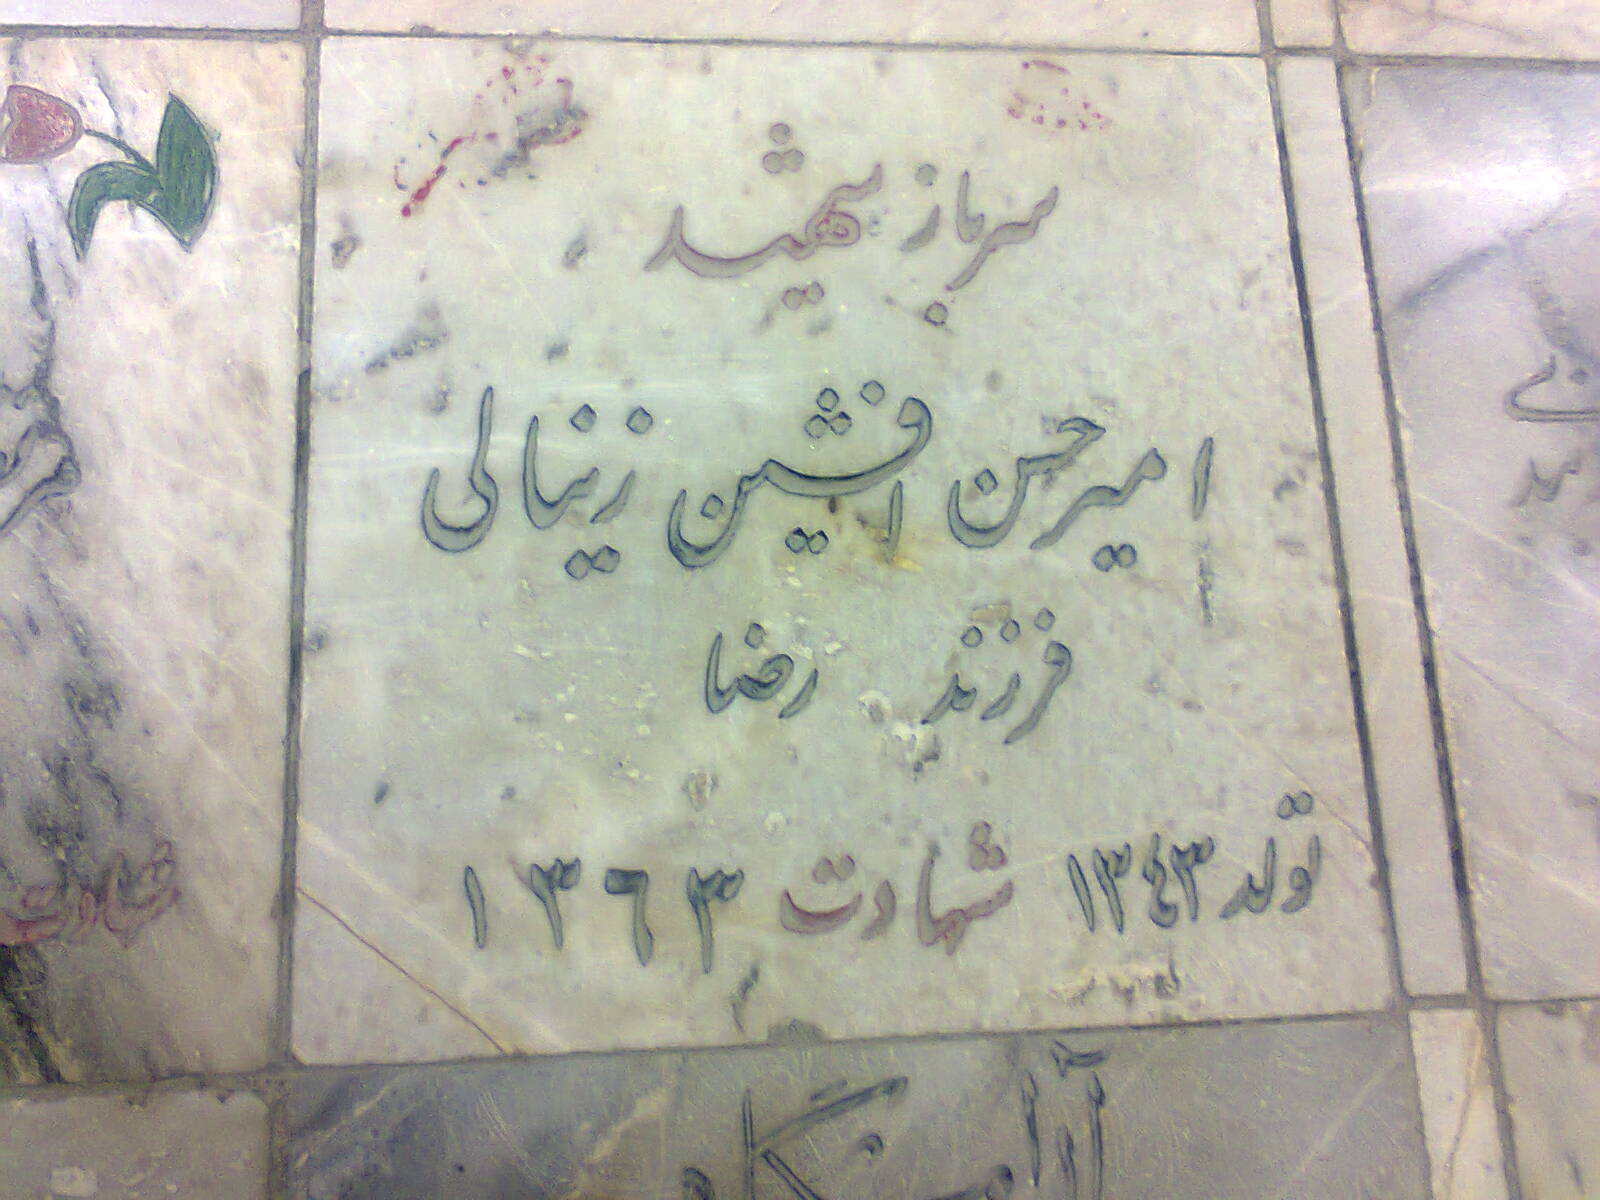 سرباز شهید
امیرحسن افشین زینالی
فرزند رضا
تولد ۱۳۴۳ شهادت ۱۳۶۳
شهادت